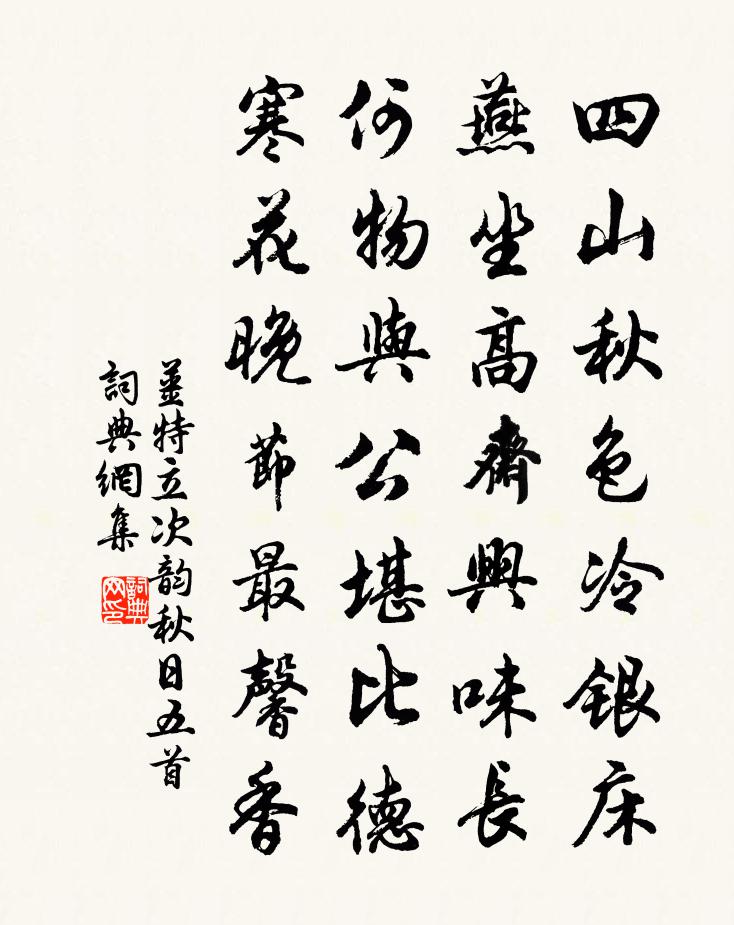 四山秋色冷銀床
燕坐高齋興味長
何物與公堪比德
寒花晚節最馨香
薑特立次韵秋日五首
詞典網集
詞典